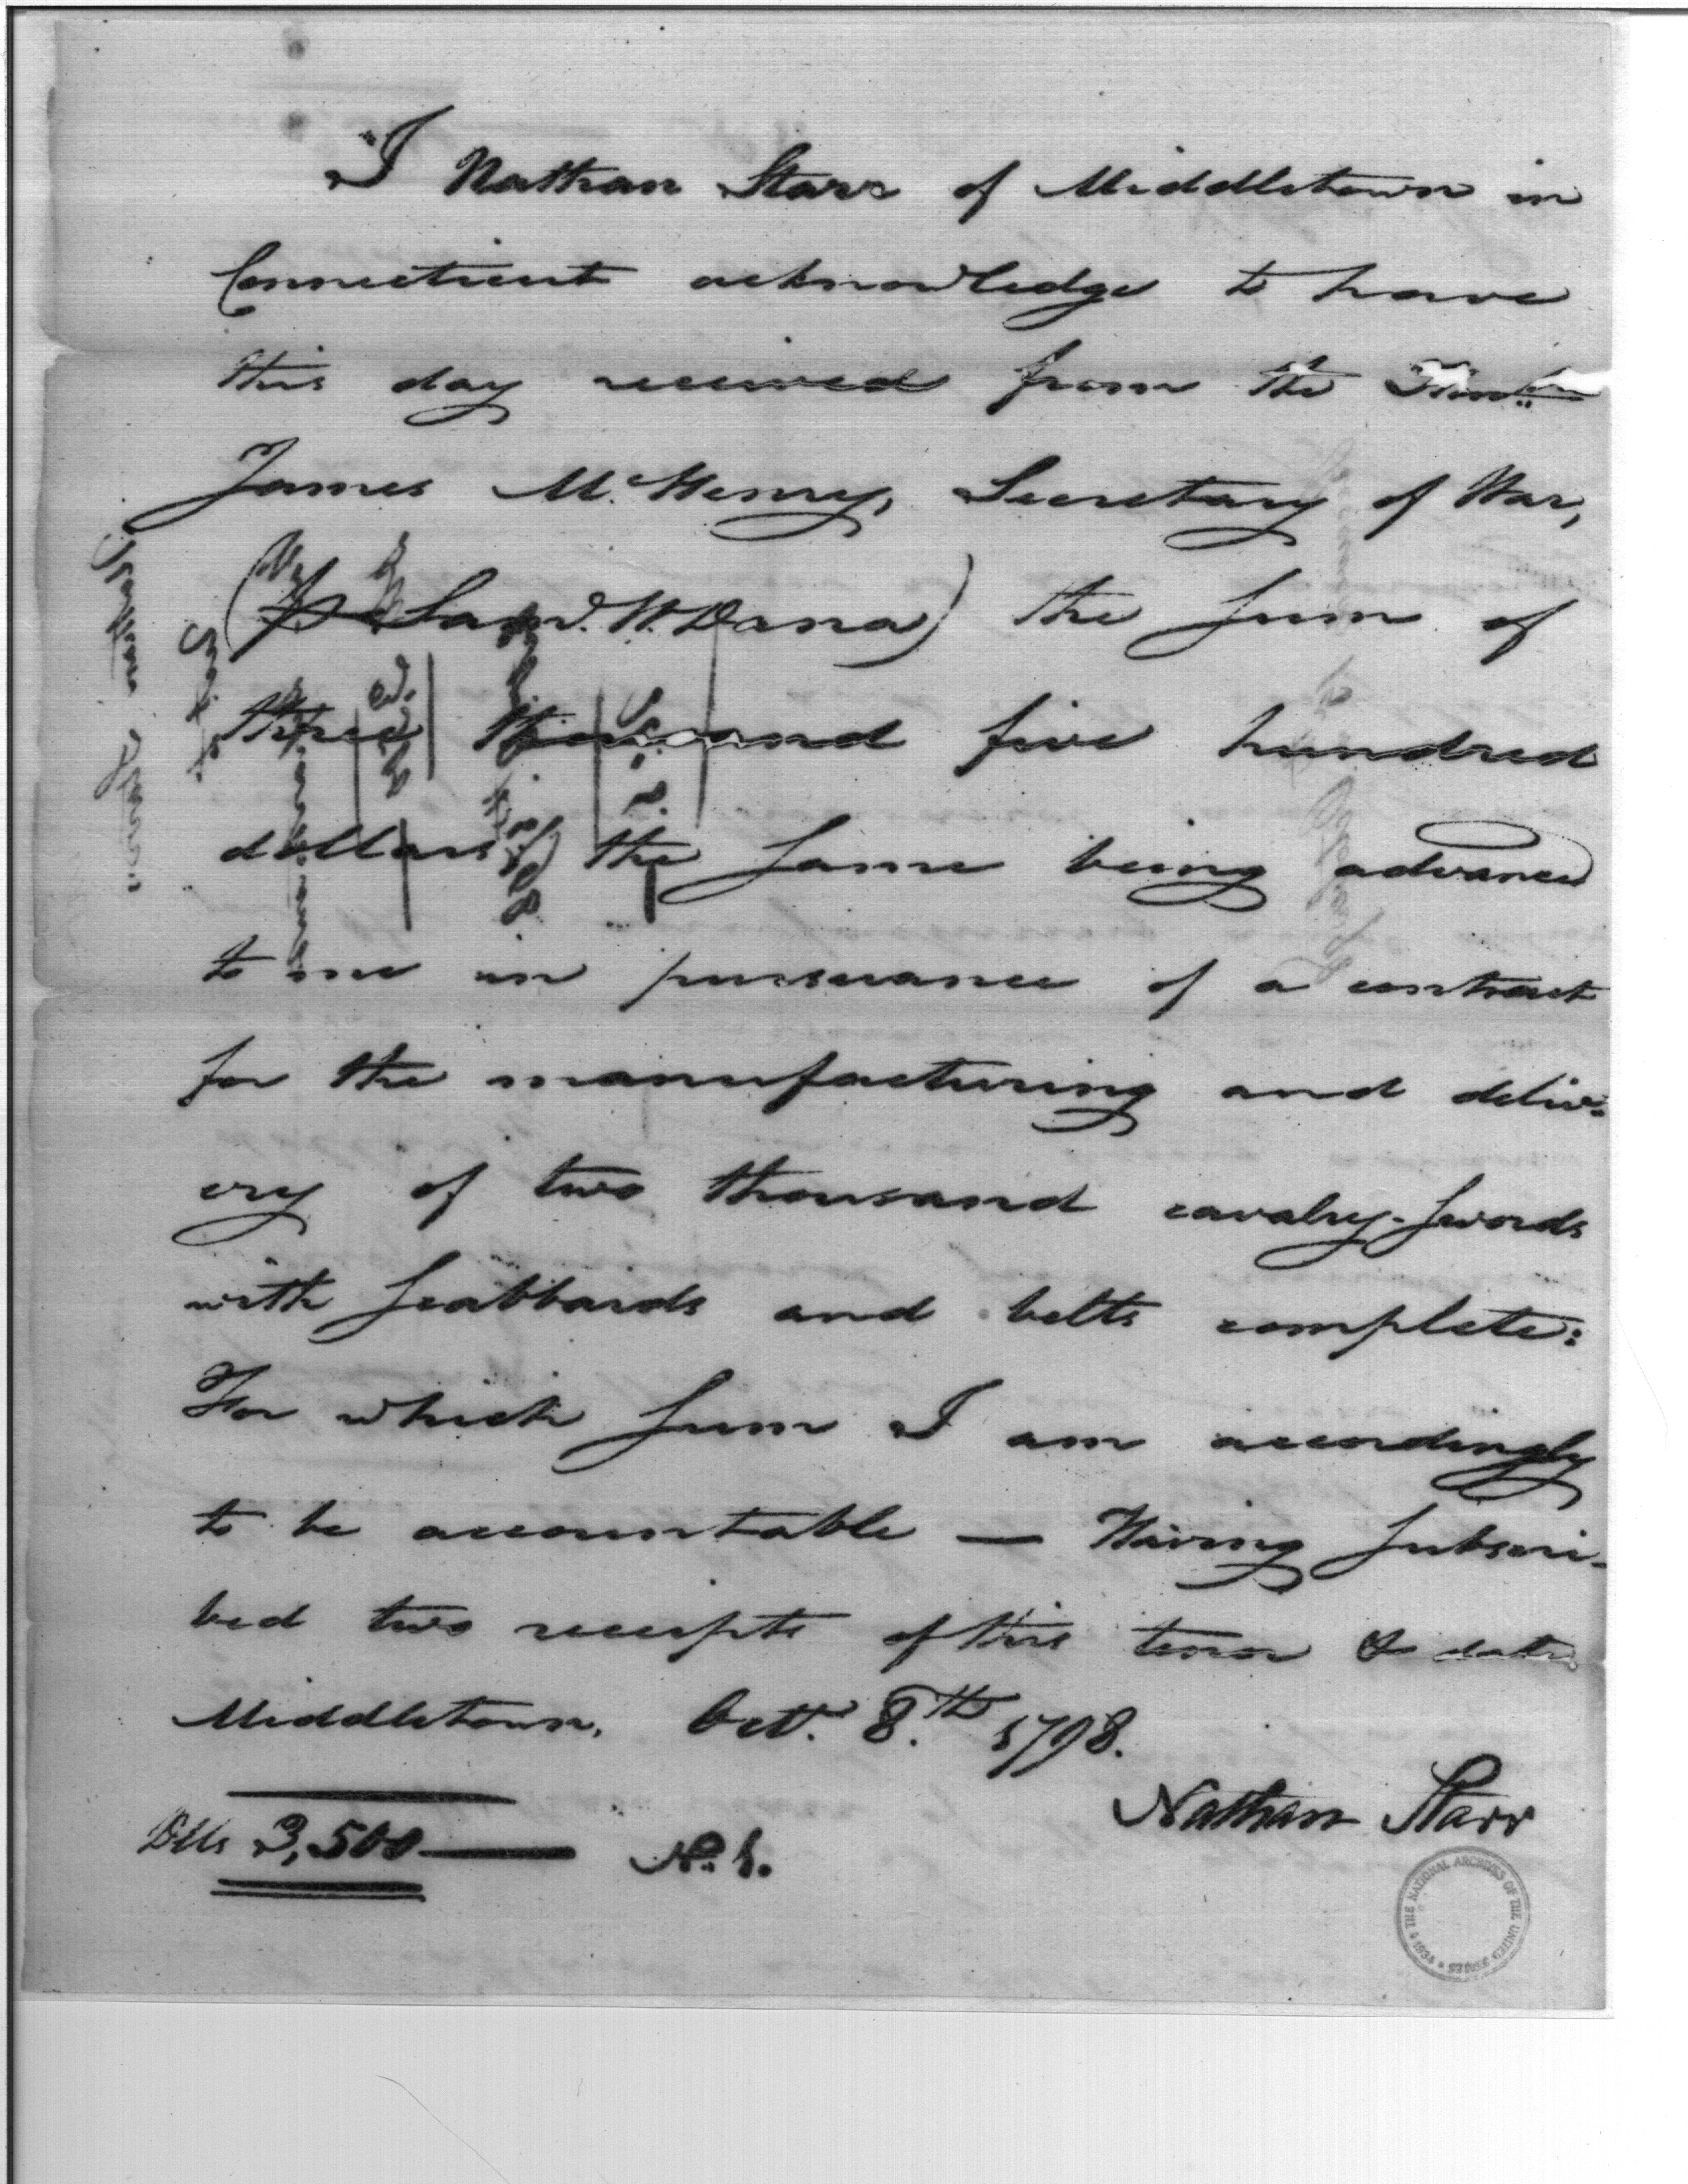 I Nathan Starr of Middletown in
Connecticut acknowledge to have
this day received from the Honb.
James McHenry, Secretary of War,
( Saml. W. Dana) the sum of
three thousand five hundred
dollars, the same being advanced
to me in pursuance of a contract
for the manufacturing and deliv-
ery of two thousand cavalry-swords
with scabbards and belts complete:
For which sum I am accordingly
to be accountable — Having subscri-
bed two receipts of this tenor & date
Middletown, Octr. 8.th 1798.
Nathan Starr
Dlls 3,500 —— No. 1.
THE NATIONAL ARCHIVES OF THE UNITED STATES * 1934 *